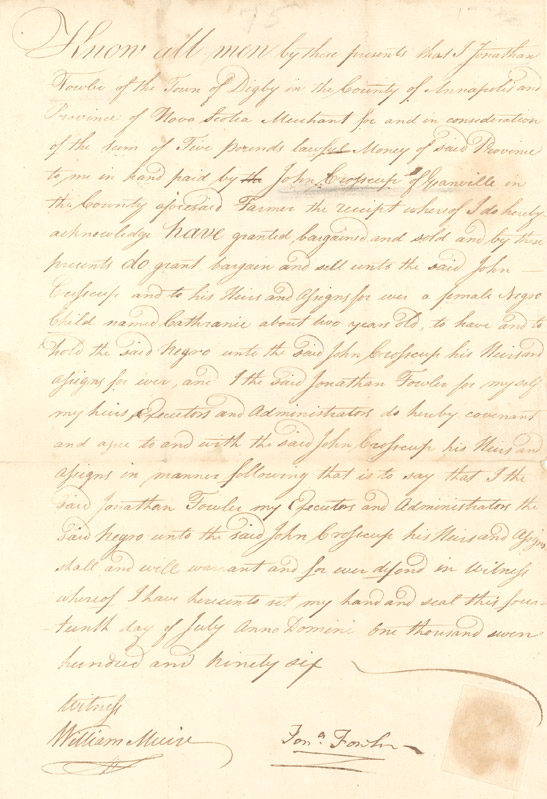 75
Know all men by these presents that I Jonathan
Fowler of the Town of Digby in the County of Annapolis and
Province of Nova Scotia Merchant for and in consideration
of the sum of Five pounds lawful Money of said Province
to me in hand paid by the John Crosscup of Granville in
the County aforesaid Farmer the receipt whereof I do hereby
acknowledge have granted, bargained and sold and by these
presents do grant bargain and sell unto the said John
Crosscup and to his Heirs and Assigns for ever a female Negro
Child named Cathranie about two years old, to have and to
hold the said Negro unto the said John Crosscup his Heirs and
assigns for ever, and I the said Jonathan Fowler for myself
my heirs, Executors and Administrators do hereby covenant
and agree to and with the said John Crosscup his Heirs and
Assigns in manner following that is to say that I the
said Jonathan Fowler my Executors and Administrators the
said Negro unto the said John Crosscup his Heirs and Assigns
shall and will warrant and for ever defend in Witness
whereof I have hereunto set my hand and seal this four-
-teenth day of July Anno Domini One thousand seven
hundred and Ninety six
Witness
William Muir
Jonª Fowler